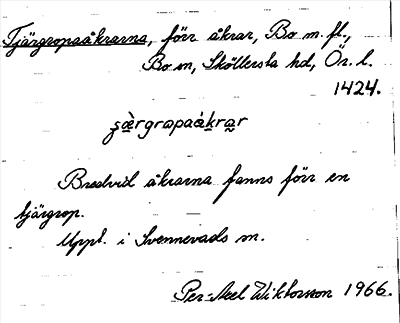 Tjärgropaåkrarna, förr åkrar, Bo m. fl.,
Bo sn, Sköllersta hd, Ör. l.
1424.
ʒæ̀rgropaåkrar
Bredvid åkrarna fanns förr en
tjärgrop.
Uppt. i Svennevads sn.
Per-Axel Wiktorsson 1966.